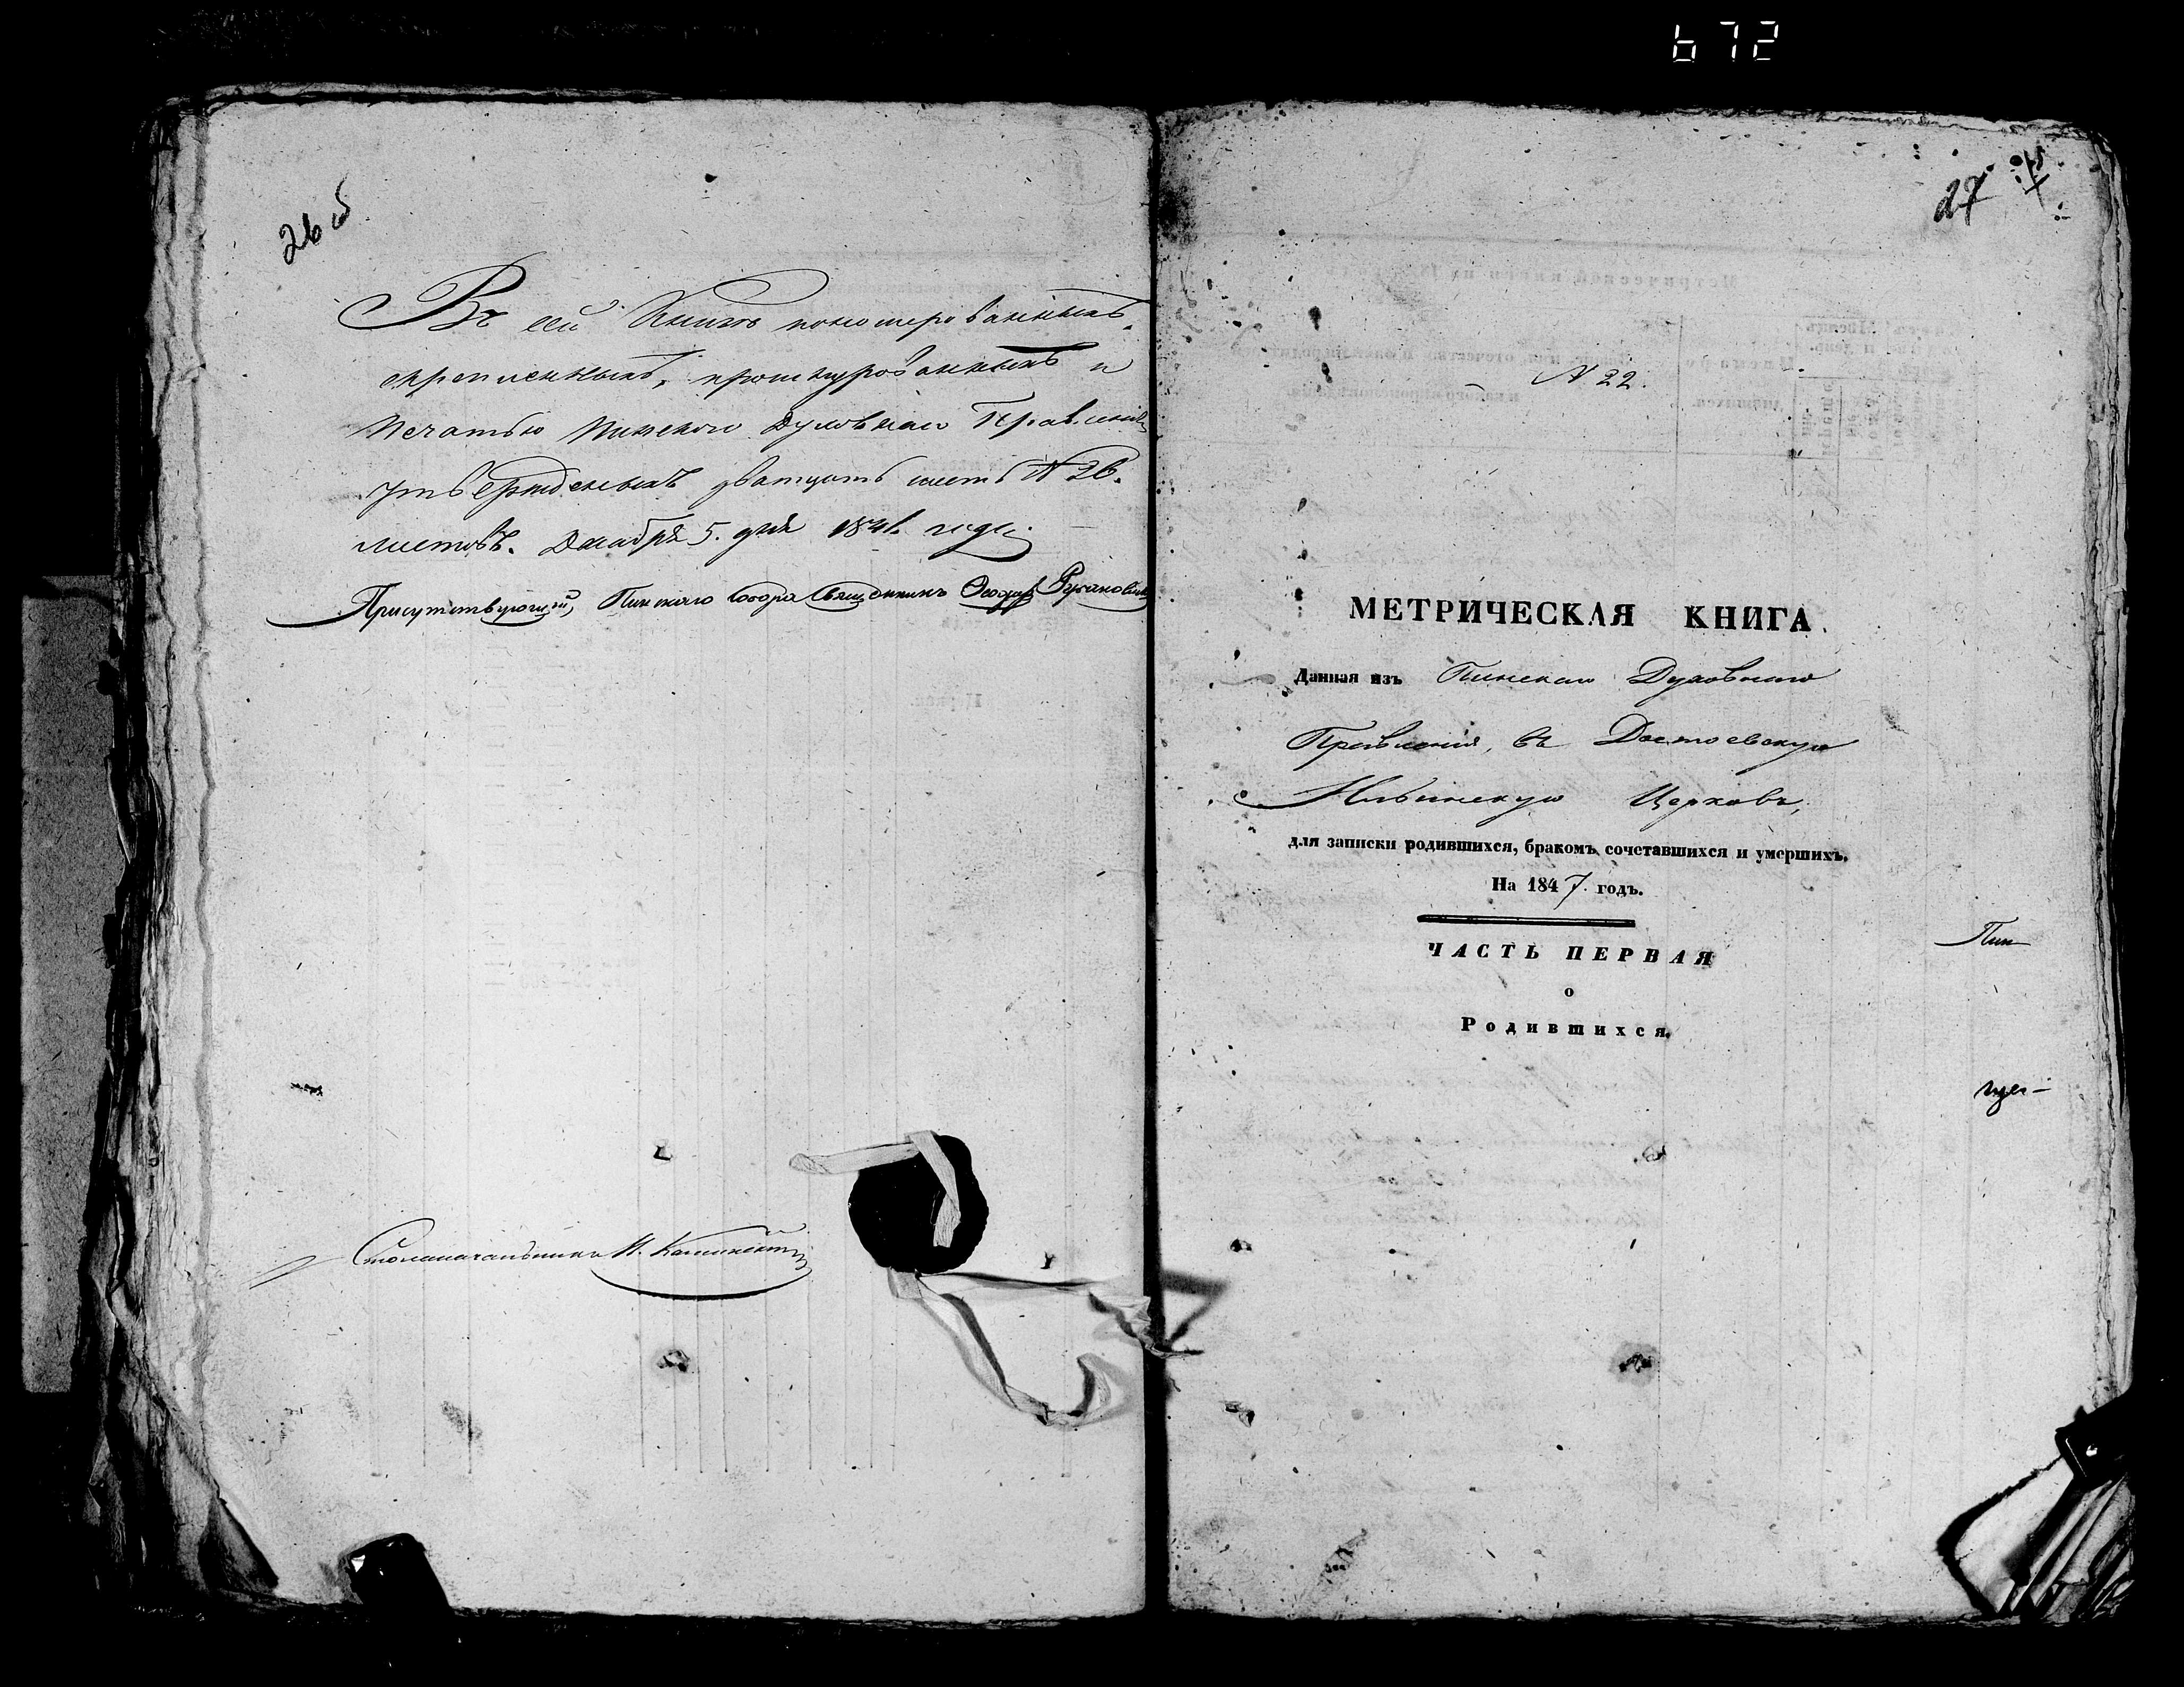 672
26 об
Въ сей Книгѣ пономерованныхъ,
скрепленныхъ, прошнурованныхъ и
печатью Пинского Духовнаго Правленія
утвержденыхъ дватцать шесть N 26.
листовъ. Декабря 5. дня 1846 года.
Присутствующій, Пинскаго Собора Священникъ Ѳеодоръ
Столоначальникъ И.
27
N 22.
МЕТРИЧЕСКАЯ КНИГА
Данная изъ Пинскаго Духовнаго
Правленія, въ Достоевскую
Ильинскую Церковь,
для записки родившихся, бракомъ сочетавшихся и умершихъ.
На 1847. годъ.
ЧАСТЬ ПЕРВАЯ
о
Родившихся.
Пин